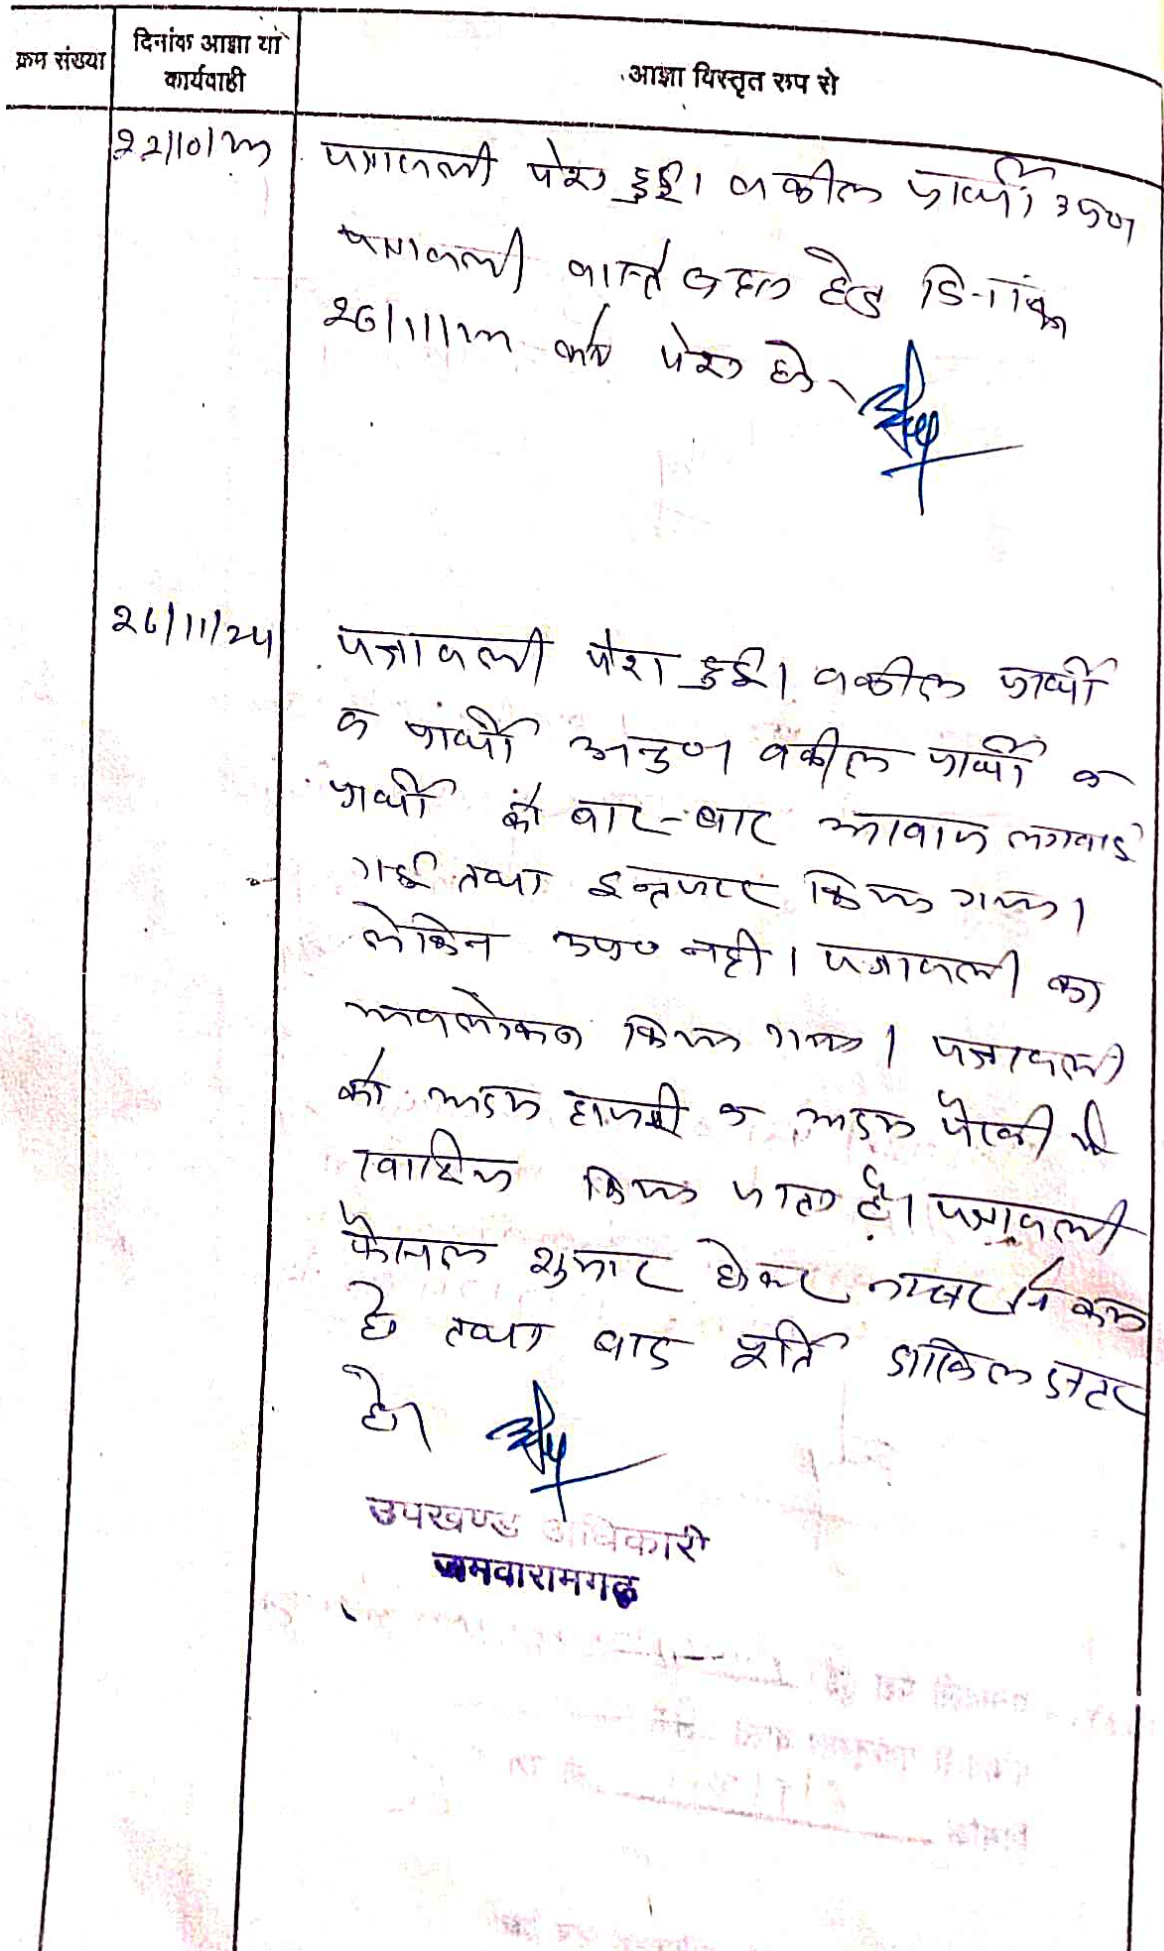 क्रम संख्या
दिनांक आज्ञा या
कार्यवाही
आज्ञा विस्तृत रूप से
22/10/24
पत्रावली पेश हुई। वकील प्रार्थी उप०
पत्रावली वास्ते बहस हेतु दिनांक
26/11/24 को पेश हो।
26/11/24
पत्रावली पेश हुई। वकील प्रार्थी
व प्रार्थी अनुप० वकील प्रार्थी व
प्रार्थी को बार-बार आवाज लगवाई
गई तथा इन्तजार किया गया।
लेकिन उप० नही। पत्रावली का
अवलोकन किया गया। पत्रावली
को अदम हाजरी व अदम पैरवी में
खारिज किया जाता है। पत्रावली
फैसल शुमार होकर नम्बर से कम
हो तथा बाद पूर्ति दाखिल दफ्तर
हो।
उपखण्ड अधिकारी
जमवारामगढ़